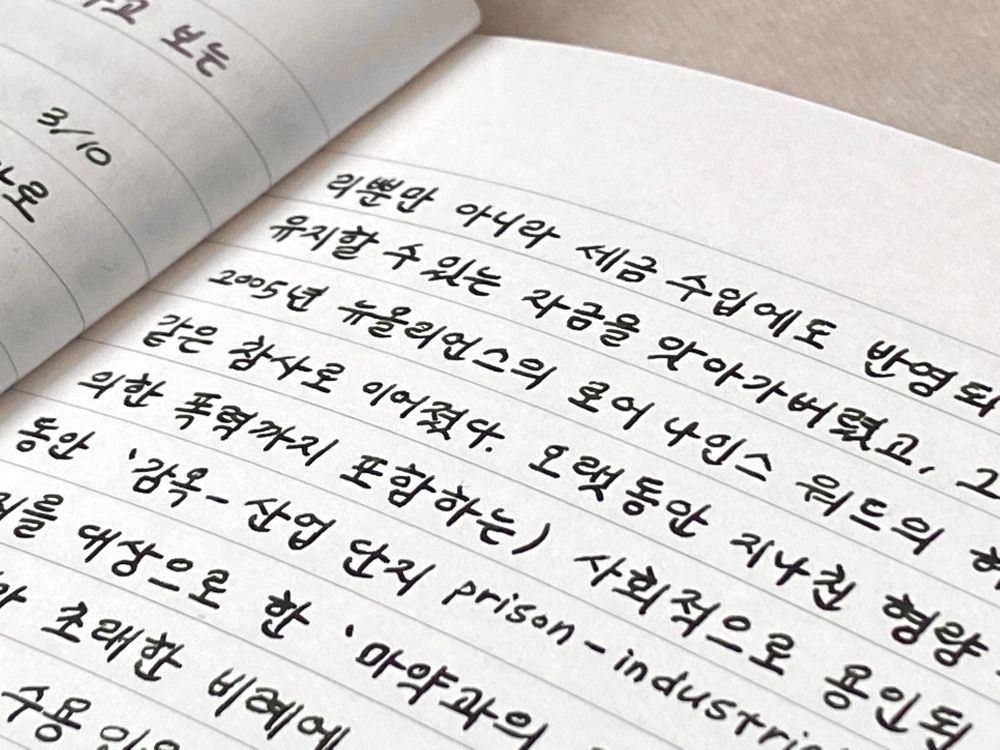 보는
3/10
리뿐만 아니라 세금 수입에도 반영되
유지할 수 있는 자금을 앗아가버렸고,
2005년 뉴올리언스의 로어 나인스 워드의
같은 참사로 이어졌다. 오랫동안 지나친 형량
의한 폭력까지 포함하는) 사회적으로 용인된
동안 '감옥-산업 단지 prison-industri
를 대상으로 한 '마약과의
초래한 비례에
수용